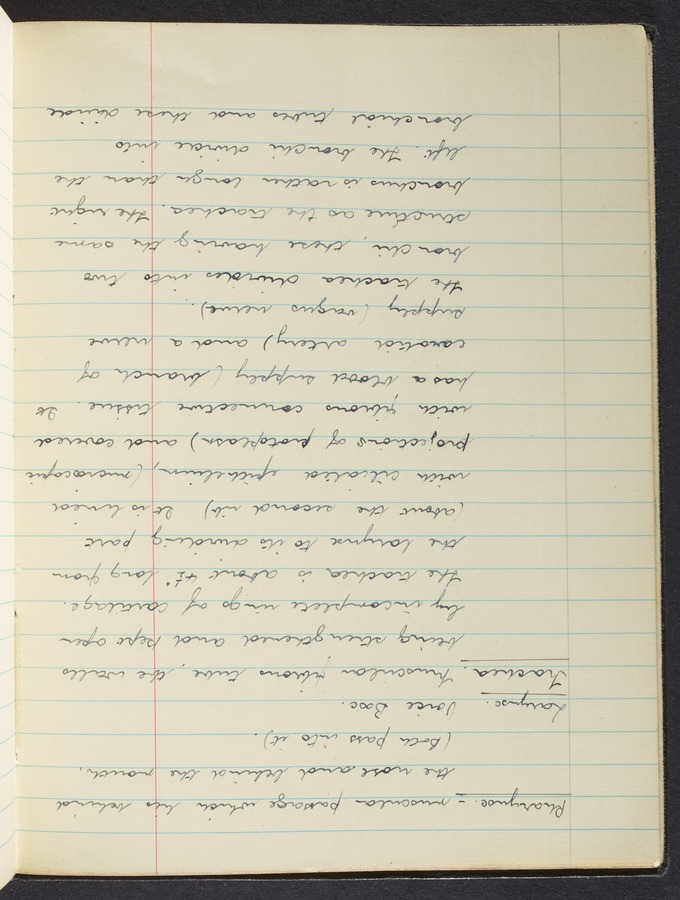 Pharynx. = muscular passage which lies behind
the nose and behind the mouth.
(Both pass into it).
Larynx. Voice Box.
Trachea. Muscular fibrous tube, the walls
being strengthened and kept open
by incomplete rings of cartilage.
the trachea is about 4½" long from
the larynx to it's dividing part
(about the second rib) It is lined
with ciliated epithelium, (microscopic
projections of protoplasm) and covered
with fibrous connective tissue. It
has a blood supply (branch of
carotid artery) and a nerve
supply (vagus nerve).
the trachea divides into two
bronchi, these having the same
structure as the trachea. the right
bronchus is rather longer than the
left. the bronchi divide into
bronchial tubes and these divide